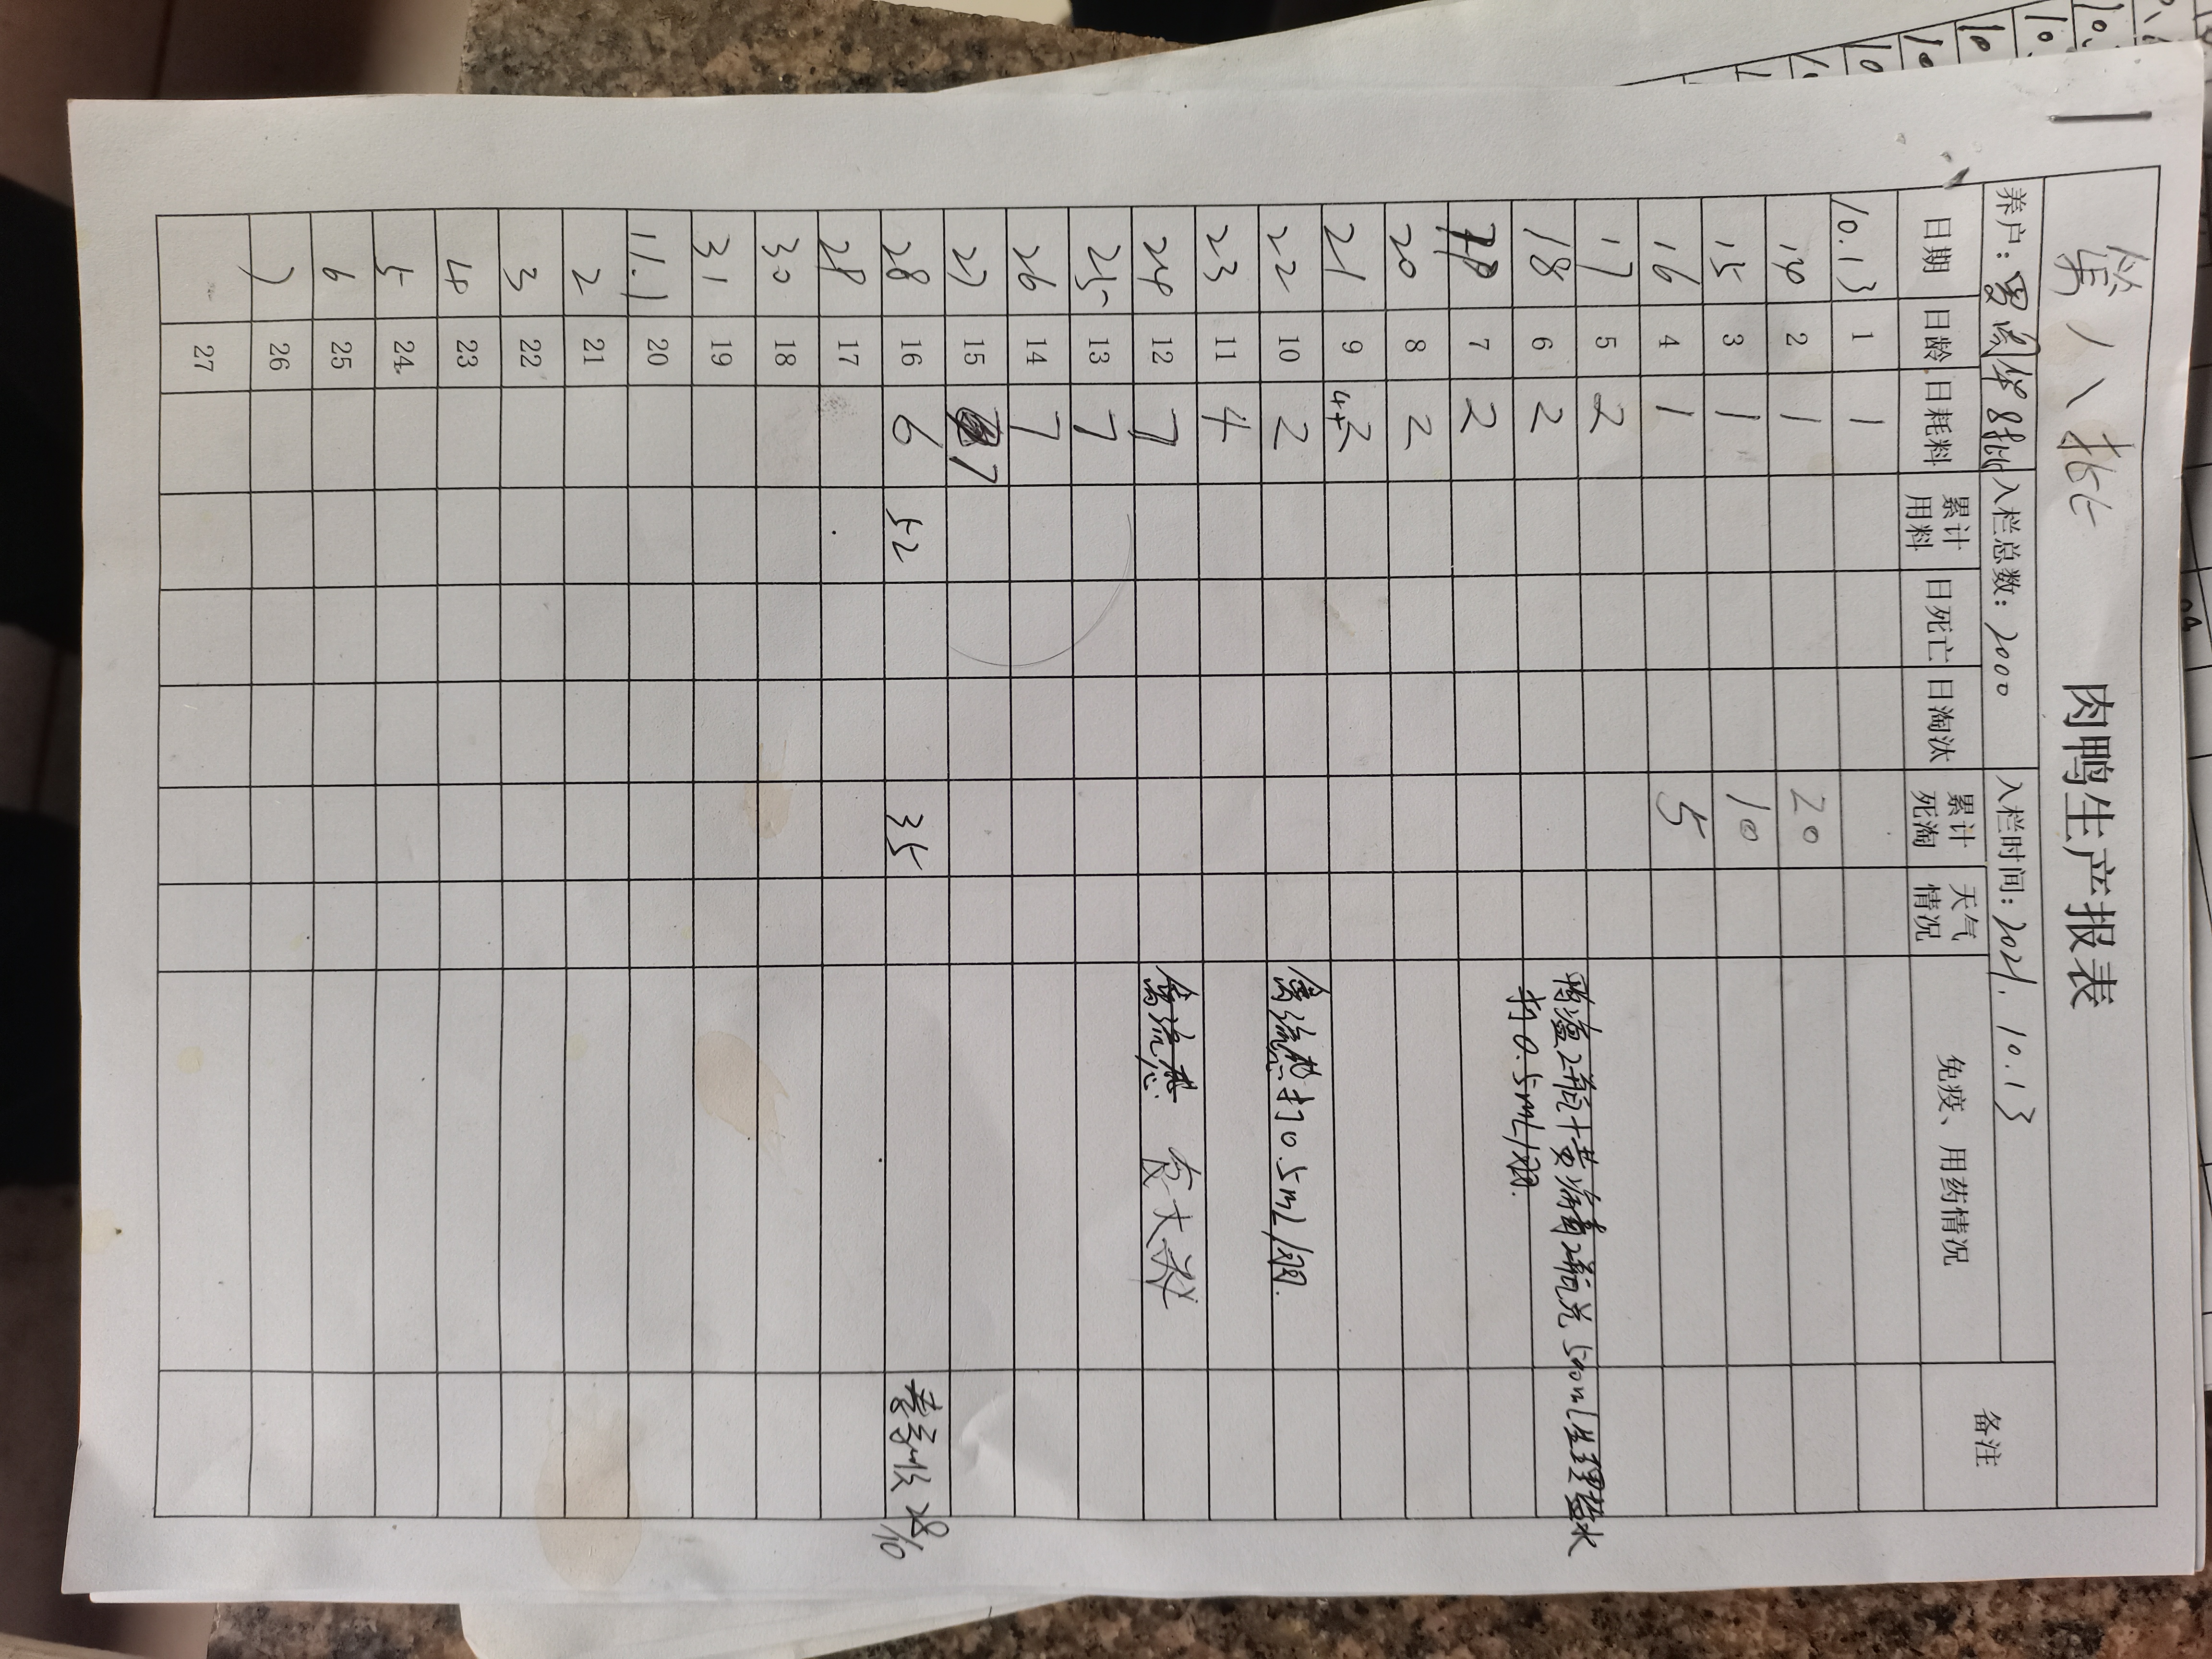 第八批 肉鸭生产报表
养户: 8批 入栏总数: 2000 入栏时间: 2021. 10.13
日期 日龄 日耗料 累计用料 日死亡 日淘汰 累计死淘 天气情况 免疫、用药情况 备注
10.13 1 1
14 2 1 20
15 3 1 10
16 4 1 5
17 5 2 鸭瘟2瓶+黄病毒2瓶兑500ml生理盐水
18 6 2 打0.5mL/羽.
19 7 2
20 8 2
21 9 2
22 10 2 禽流感打0.5mL/羽.
23 11 4
24 12 7 禽流感 大
25 13 7
26 14 7
27 15 7
28 16 6 52 35 28/10
29 17
30 18
31 19
11.1 20
2 21
3 22
4 23
5 24
6 25
7 26
27